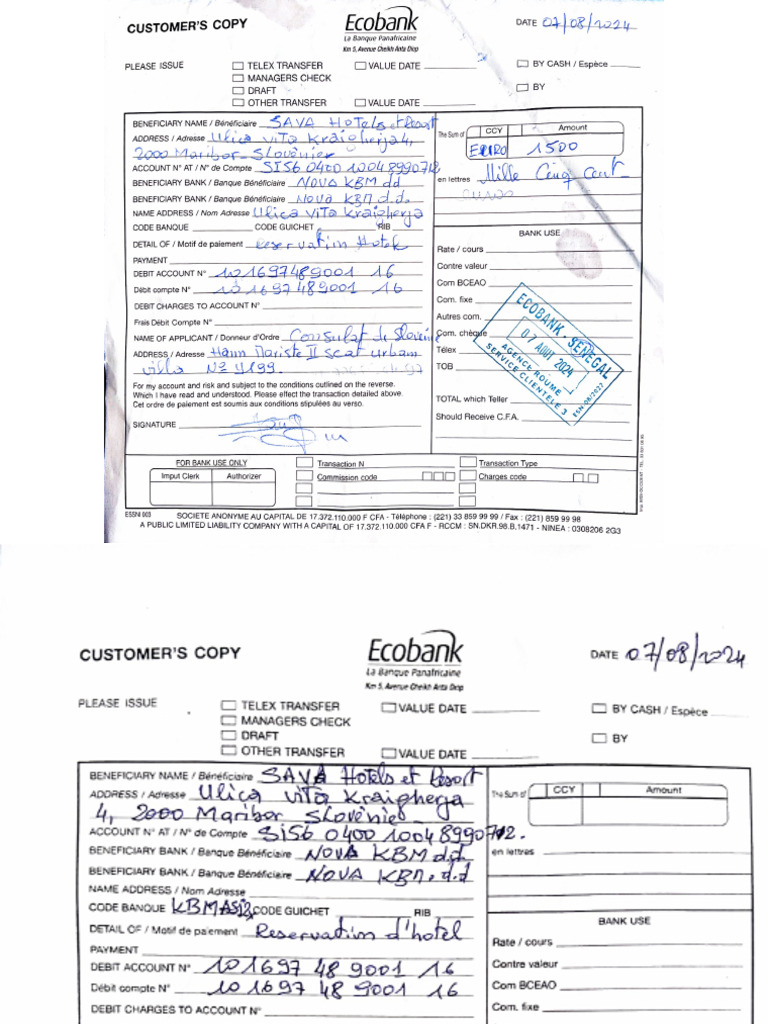 CUSTOMER'S COPY
Ecobank
La Banque Panafricaine
Km 5, Avenue Cheikh Anta Diop
DATE 07/08/2024
PLEASE ISSUE
TELEX TRANSFER
VALUE DATE
BY CASH / Espèce
MANAGERS CHECK
DRAFT
BY
OTHER TRANSFER
VALUE DATE
BENEFICIARY NAME / Bénéficiaire SAVA Hotels et Resort
ADDRESS / Adresse Ulica Vita Kraigherja 4,
2000 Maribor - Slovénier
ACCOUNT N° AT / N° de Compte SI56 0400 1004 8990 712
BENEFICIARY BANK / Banque Bénéficiaire NOVA KBM dd
BENEFICIARY BANK / Banque Bénéficiaire Nova KBM d.d.
NAME ADDRESS / Nom Adresse Ulica Vita Kraigherja
CODE BANQUE CODE GUICHET RIB
DETAIL OF / Motif de paiement reservation Hotel
PAYMENT
DEBIT ACCOUNT N° 101697489001 16
Débit compte N° 101697489001 16
DEBIT CHARGES TO ACCOUNT N°
Frais Débit Compte N°
NAME OF APPLICANT / Donneur d'Ordre Consulat de Slovénie
ADDRESS / Adresse Hann Mariste II scat urbam
villa N° 4199.
For my account and risk and subject to the conditions outlined on the reverse.
Which I have read and understood. Please effect the transaction detailed above.
Cet ordre de paiement est soumis aux conditions stipulées au verso.
SIGNATURE
The Sum of CCY Amount
EURO 1500
en lettres Mille Cinq Cent
euros
BANK USE
Rate / cours
Contre valeur
Com BCEAO
Com. fixe
Autres com.
Com. chèque
Télex
TOB
TOTAL which Teller
Should Receive C.F.A.
ECOBANK - SENEGAL
07 AOUT 2024
AGENCE ROUME
SERVICE CLIENTELE 3
ESN-06/2027
FOR BANK USE ONLY
Imput Clerk Authorizer
Transaction N
Transaction Type
Commission code
Charges code
ESSNI 003
SOCIETE ANONYME AU CAPITAL DE 17.372.110.000 F CFA - Téléphone : (221) 33 859 99 99 / Fax : (221) 859 99 98
A PUBLIC LIMITED LIABILITY COMPANY WITH A CAPITAL OF 17.372.110.000 CFA F - RCCM : SN.DKR.98.B.1471 - NINEA : 0308206 2G3
CUSTOMER'S COPY
Ecobank
La Banque Panafricaine
Km 5, Avenue Cheikh Anta Diop
DATE 07/08/2024
PLEASE ISSUE
TELEX TRANSFER
VALUE DATE
BY CASH / Espèce
MANAGERS CHECK
DRAFT
BY
OTHER TRANSFER
VALUE DATE
BENEFICIARY NAME / Bénéficiaire SAVA Hotels et Resort
ADDRESS / Adresse Ulica Vita Kraigherja
4, 2000 Maribor Slovénie
ACCOUNT N° AT / N° de Compte SI56 0400 1004 8990 712.
BENEFICIARY BANK / Banque Bénéficiaire NOVA KBM d.d
BENEFICIARY BANK / Banque Bénéficiaire NOVA KBM. d.d
NAME ADDRESS / Nom Adresse
CODE BANQUE KBMASI2 CODE GUICHET RIB
DETAIL OF / Motif de paiement Reservation d'hotel
PAYMENT
DEBIT ACCOUNT N° 101697 48 9001 16
Débit compte N° 101697 48 9001 16
DEBIT CHARGES TO ACCOUNT N°
The Sum of CCY Amount
en lettres
BANK USE
Rate / cours
Contre valeur
Com BCEAO
Com. fixe